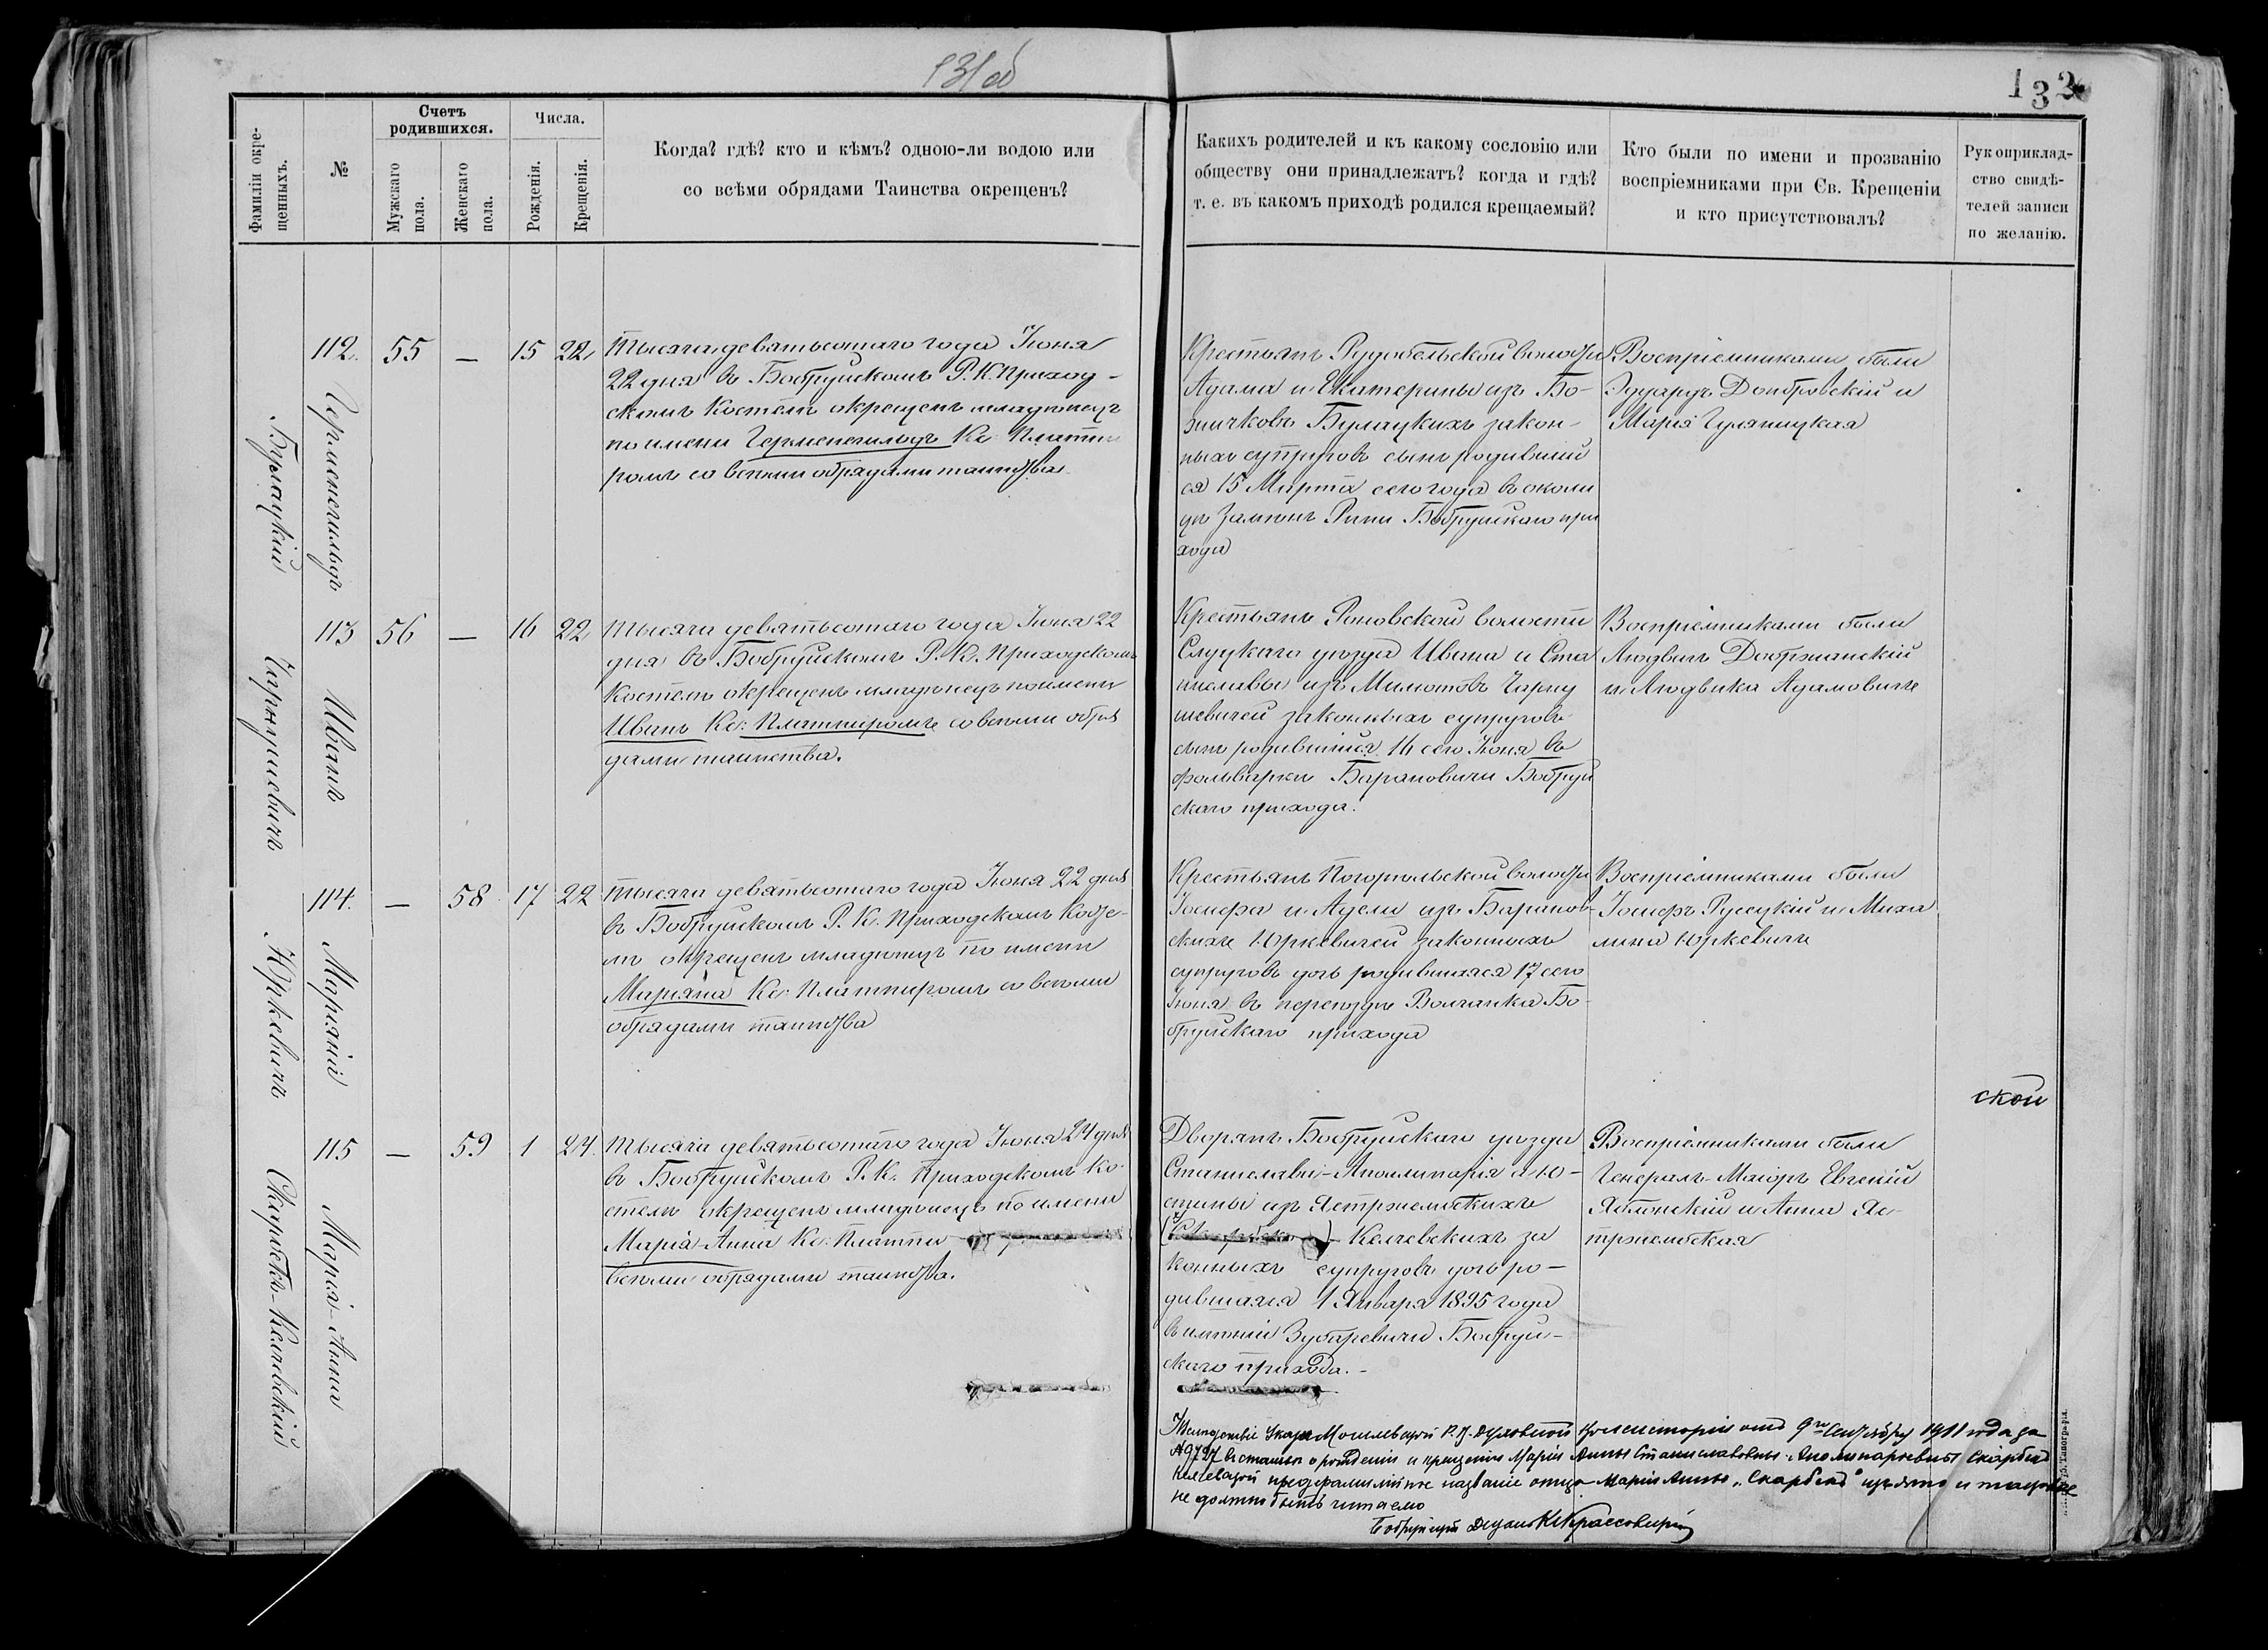 131об
132
Фамиліи окре-
щенныхъ.
№
Счетъ
родившихся.
Мужскаго
пола.
Женскаго
пола.
Числа.
Рожденія.
Крещенія.
Когда? гдѣ? кто и кѣмъ? одною-ли водою или
со всѣми обрядами Таинства окрещенъ?
Каких​ъ родителей и къ какому сословію или
обществу они принадлежатъ? когда и гдѣ?
т. е. въ какомъ приходѣ родился крещаемый?
Кто были по имени и прозванію
воспріемниками при Св. Крещеніи
и кто присутствовалъ?
Рукоприклад-
ство свидѣ-
телей записи
по желанію.
Булацкій
112. Герменегильдъ
55
—
15
22
Тысяча девятьсотаго года Іюня
22 дня въ Бобруйскомъ Р. К. Приход-
скомъ Костелѣ окрещенъ младенецъ
по имени Герменегильдъ Кс: Платпи
ромъ со всѣми обрядами таинства
Крестьянъ Рудобельской волости
Адама и Екатерины изъ Бо-
жичковъ Булацкихъ закон-
ныхъ супруговъ сынъ родивший
ся 15 Марта сего года въ околи
цѣ Бобруйскаго при
хода
Воспріемниками были
Эдуардъ Домбровскій и
Марія Гуляницкая
Чарнушевичъ
113 Иванъ
56
—
16
22
Тысяча девятьсотаго года Іюня 22
дня въ Бобруйскомъ Р. К. Приходскомъ
Костелѣ окрещенъ младенецъ по имени
Иванъ Кс: Платпиромъ со всѣми обря
дами таинства.
Крестьянъ Романовской волости
Слуцкаго уѣзда Ивана и Ста
ниславы изъ Милютовъ Чарну
шевичей законныхъ супруговъ
сынъ родившійся 16 сего Іюня въ
фольварки Барановичи Бобруй
скаго прихода.
Воспріемниками были
Людвигъ Добржанскій
и Людвика Адамовичъ
Юркевичъ
114. Маріанна
—
58
17
22
Тысяча девятьсотаго года Іюня 22 дня
въ Бобруйскомъ Р. К. Приходскомъ Косте-
лѣ окрещенъ младенецъ по имени
Маріяна Кс: Платпиромъ со всѣми
обрядами таинства
Крестьянъ Погорѣльской волости
Іосифа и Адели изъ Баранов-
скихъ Юркевичей законныхъ
супруговъ дочь родившаяся 17 сего
Іюня въ переѣздѣ Волчанка Бо-
бруйскаго прихода
Воспріемниками были
Іосифъ Русецкій и Миха
лина Юркевичъ
Скарбекъ-Келчевскій
115 Марія-Анна
—
59
1
24.
Тысяча девятьсотаго года Іюня 24 дня
въ Бобруйскомъ Р. К. Приходскомъ Ко-
стелѣ окрещенъ младенецъ по имени
Марія-Анна Кс: Платпи
всѣми обрядами таинства.
Дворянъ Бобруйскаго уѣзда
Станислава-Аполлинарія и Ю-
стины изъ Ястржембскихъ
Келчевскихъ за
конныхъ супруговъ дочь ро-
дившаяся 1 Января 1895 года
въ имѣніи Зубаревичи Бобруй-
скаго прихода.-
Воспріемниками были
Генералъ-Маіоръ Евгеній
Яблонскій и Анна Яс-
тржембская
ской
Вслѣдствіе Указа Могилевской Р. К. Духовной Консисторіи отъ 9го Сентября 1911 года за
№ 9797 въ статьѣ о рожденіи и крещеніи Маріи Анны Станиславовны-Аполинарьевны Скарбекъ
Келчевской предфамильное названіе отца Маріи Анны „Скарбекъ" изъято и таковое
не должно быть читаемо
Бобруйскій Деканъ